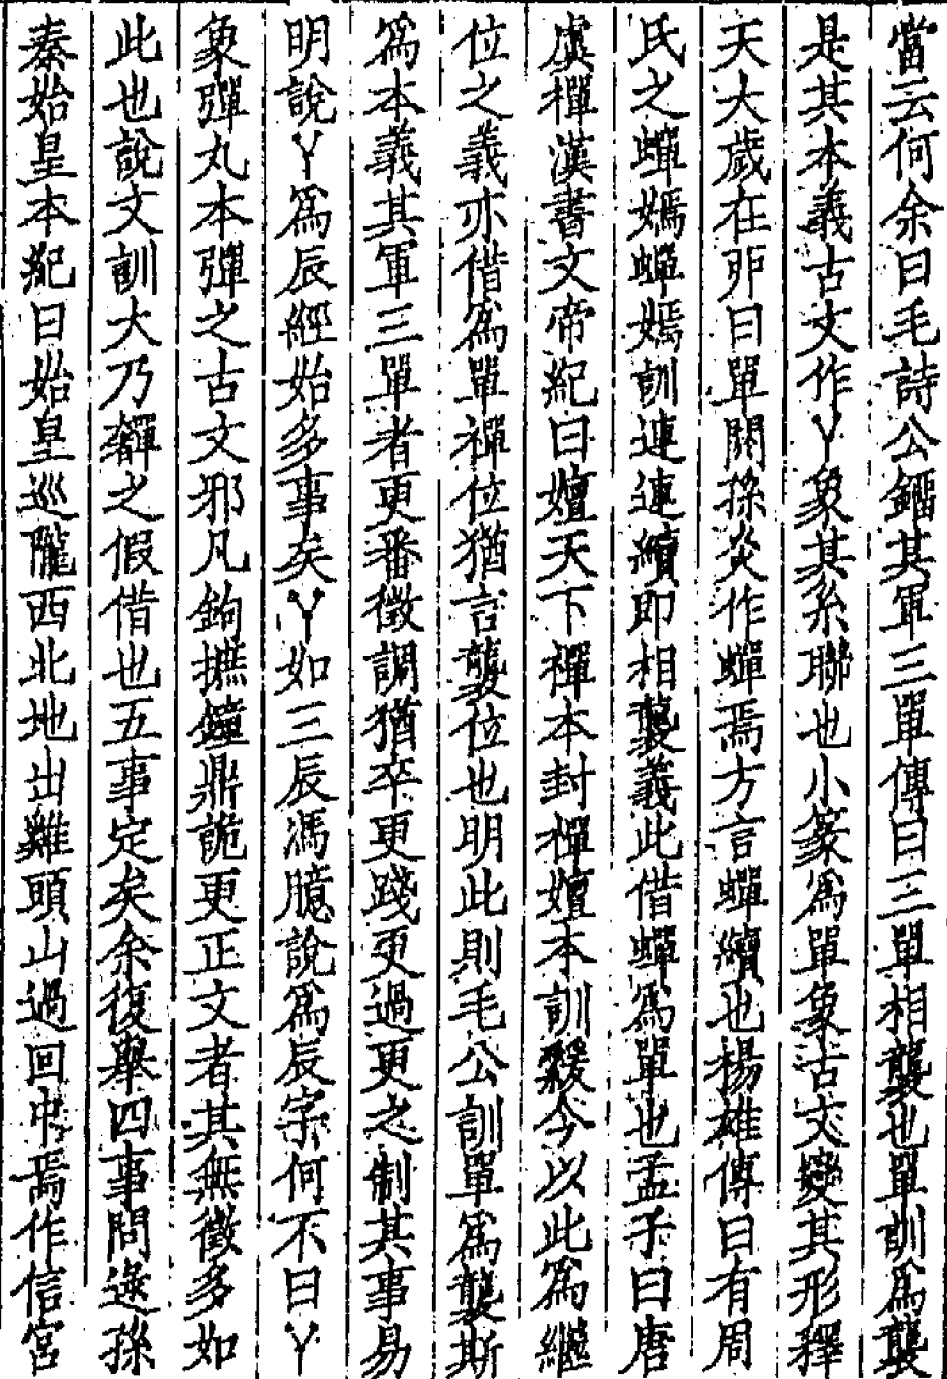 當云何余曰毛詩公鎦其軍三單傳曰三單相襲也單訓為襲
是其本義古文作丫象其系聯也小篆為單象古文變其形釋
天大歲在丣曰單閼孫炎作蟬焉方言蟬續也楊雄傳曰有周
氏之蟬嫣蟬嫣訓連連續即相襲義此借蟬為單也孟子曰唐
虞禪漢書文帝紀曰嬗天下禪本封禪嬗本訓緩今以此為繼
位之義亦借為單禪位猶言襲位也明此則毛公訓單為襲斯
為本義其軍三單者更番徵調猶卒更踐更過更之制其事易
明說丫為辰經始多事矣丫如三辰馮臆說為辰字何不曰丫
象彈丸本彈之古文邪凡鉤摭鐘鼎詭更正文者其無徵多如
此也說文訓大乃奲之假借也五事定矣余復舉四事問遜孫
秦始皇本紀曰始皇巡隴西北地出雞頭山過回中焉作信宮